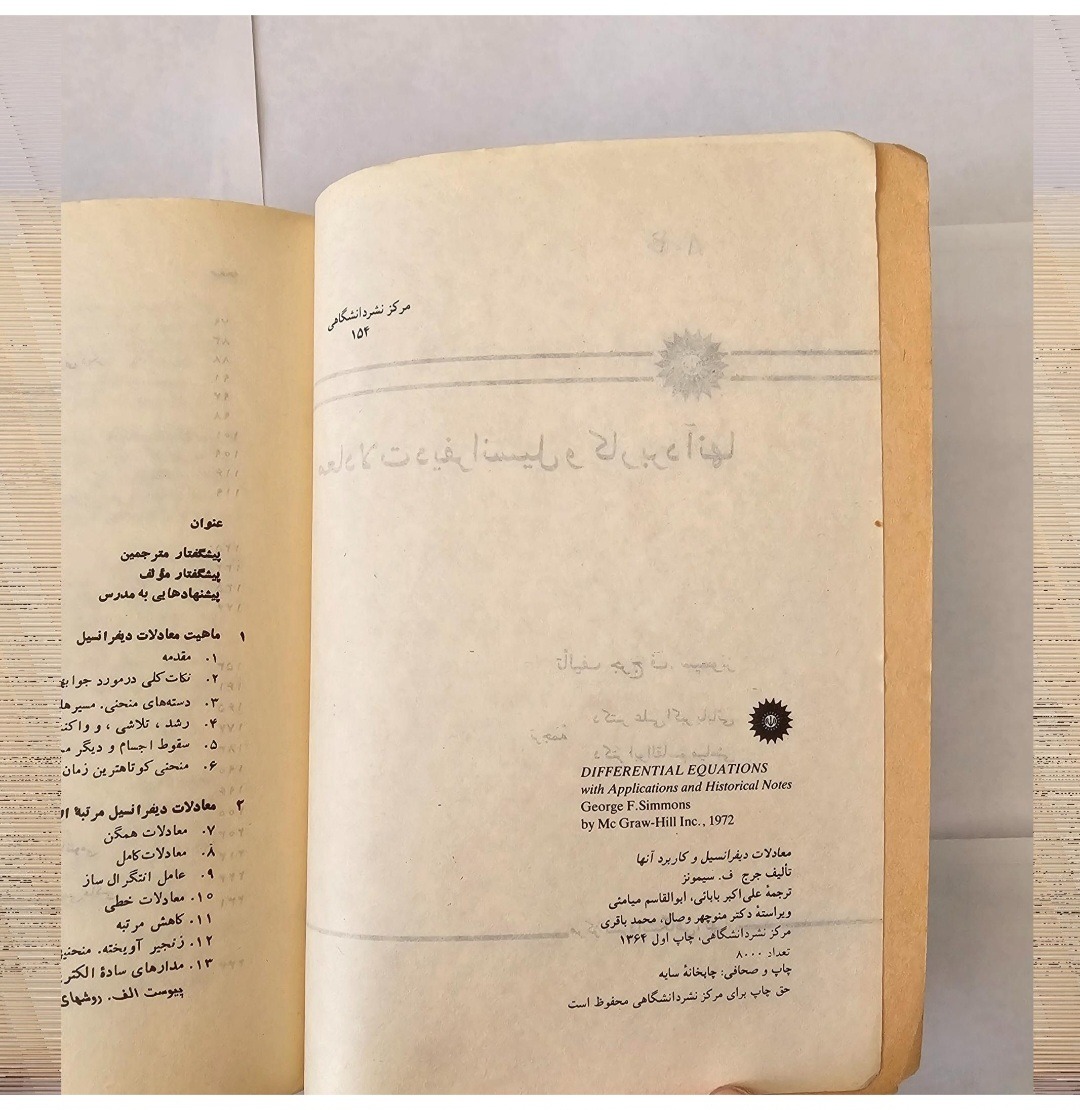 مرکز نشردانشگاهی
۱۵۴
DIFFERENTIAL EQUATIONS
with Applications and Historical Notes
George F.Simmons
by Mc Graw-Hill Inc., 1972
معادلات دیفرانسیل و کاربرد آنها
تألیف جرج ف. سیمونز
ترجمهٔ علی‌اکبر بابائی، ابوالقاسم میامئی
ویراستهٔ دکتر منوچهر وصال، محمد باقری
مرکز نشردانشگاهی، چاپ اول ۱۳۶۴
تعداد ۸۰۰۰
چاپ و صحافی: چاپخانهٔ سایه
حق چاپ برای مرکز نشردانشگاهی محفوظ است
عنوان
پیشگفتار مترجمین
پیشگفتار مؤلف
پیشنهادهایی به مدرس
۱ ماهیت معادلات دیفرانسیل
۱. مقدمه
۲. نکات کلی درمورد جوابه
۳. دسته‌های منحنی. مسیرها
۴. رشد ، تلاشی ، و واکنـ
۵. سقوط اجسام و دیگر مـ
۶. منحنی کوتاهترین زمان
۲ معادلات دیفرانسیل مرتبهٔ ا
۷. معادلات همگن
۸. معادلات کامل
۹. عامل انتگرال ساز
۱۰. معادلات خطی
۱۱. کاهش مرتبه
۱۲. زنجیر آویخته. منحنیه
۱۳. مدارهای سادهٔ الکتر
پیوست الف. روشهای